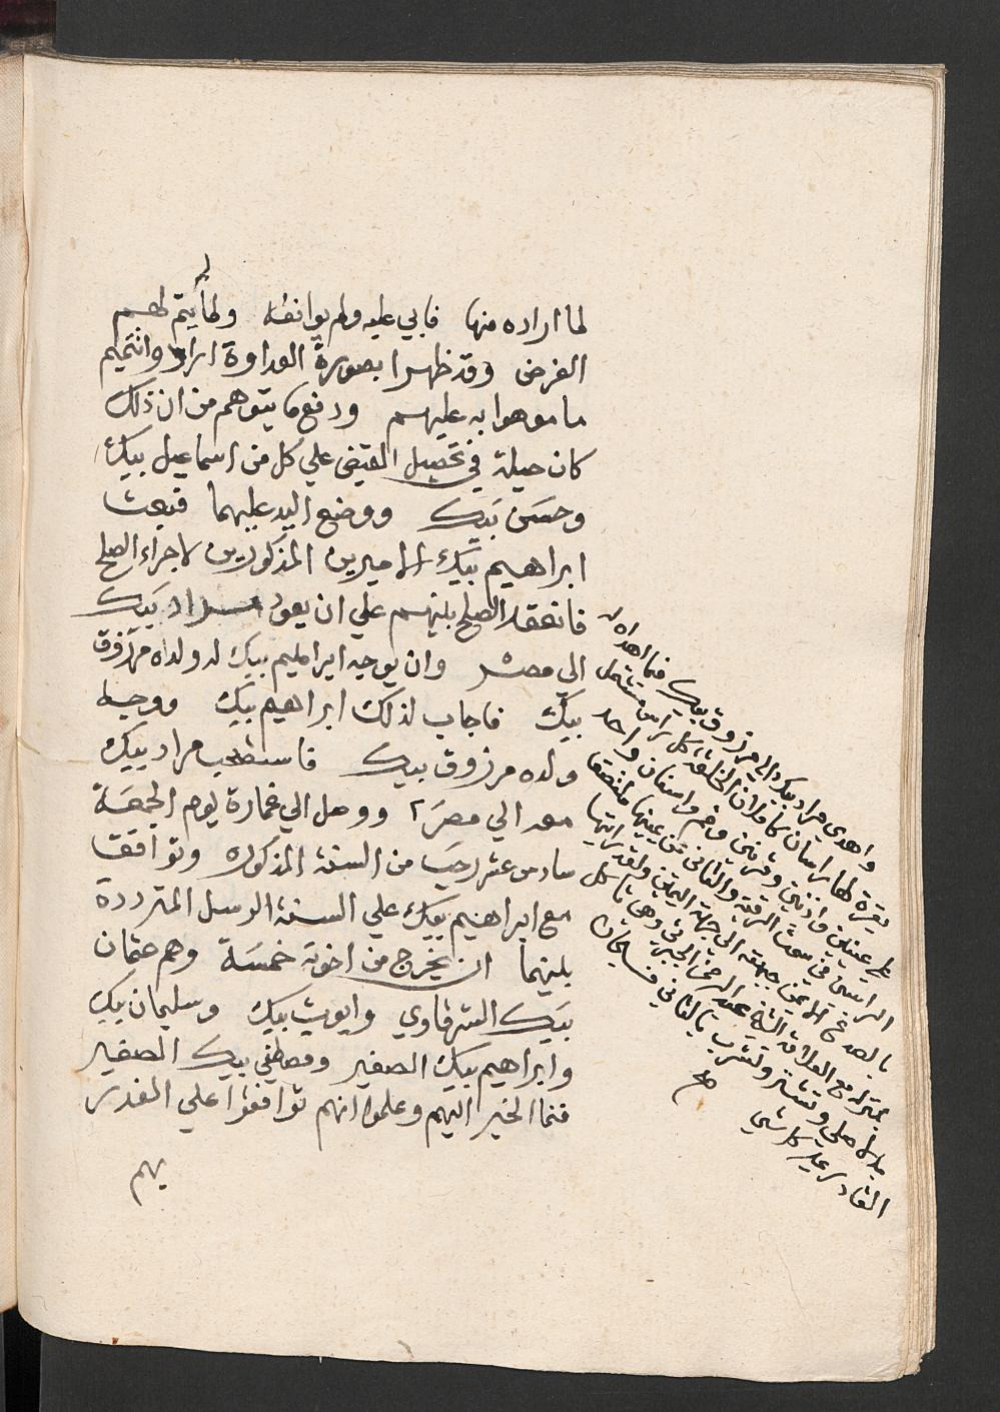 لما اراده منها فابي عليه ولم يوافقه ولما لم يتم لهم
الغرض وقد ظهرا بصورة العداوة ارادوا تتميم
ما موهوا به عليهم ودفع ما يتوهم من ان ذلك
كان حيلة في تحصيل القبض علي كل من اسماعيل بيك
وحسن بيك ووضع اليد عليهما فبعث
ابراهيم بيك الاميرين المذكورين لاجراء الصلح
فانعقد الصلح بينهم علي ان يعود مراد بيك
الي مصر وان يوجه ابراهيم بيك له ولداه مرزوق
بيك فاجاب لذلك ابراهيم بيك ووجه
ولده مرزوق بيك فاستصحب مراد بيك
معه الي مصر ووصل الي غمازة يوم الجمعة
سادس عشر رجب من السنة المذكورة وتوافقا
مع ابراهيم بيك علي السنة الرسل المترددة
بينهما ان يخرج من اخوته خمسة وهم عثمان
بيك الشرقاوي وايوب بيك وسليمان بيك
وابراهيم بيك الصغير ومصطفي بيك الصغير
فنما الخبر اليهم وعلموا انهم توافقوا علي الغدر
بهم
واهدي مراد بيك الي مرزوق بيك فيما اهداه
بقرة لها راسان كاملان الخلقة كل راس مشتمل
علي عينين واذنين وقرنين وفم واسنان واحد
الراسين في سمت الرقبة والثاني عن يمينها ملتصقا
بالصدغ الايمن جهته الي جهة اليمين ولقد رايتها
بمنزله مع العلامة الشيخ عبد الرحمن الجبرتي وهي تاكل
بالاصلي وتشتر وتشرب بالثاني فسبحان
القادر علي كل شي
صح